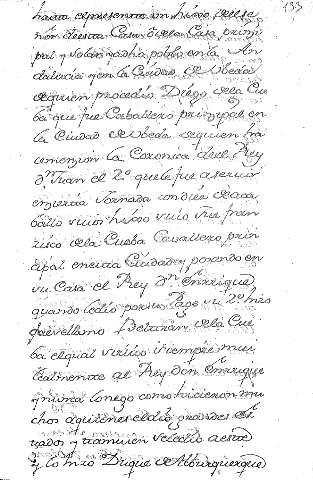 133
hasta el presente un hixo de el se
ñor de esta Casa o de la Casa prinzi
pal y Solariega ha poblo en la An
dalucia y en la Ciudad de Vbeda
de quien procedio Diego de la Cue
ba que fue Caballero principal en
la Ciudad de Vbeda de quien haze
mencion la Coronica de el Rey
dn Juan el 2º que le fue a servir
en cierta Jornada con dies de aca
ballo vuio un hixo vuio que fran
zisco de la Cueba Cavallero prin
cipal en esta Ciudad y posando en
su Casa el Rey dn Enrrique
quando le dio por su Page su 2º hixo
que se llamo Beltran de la Cue
ba el qual sirvio siempre mui
lealmente al Rey don Enrrique
y nunca lo nego como hicieron mu
chos a quienes el dio grandes Es
tados y tambien se le dio a este
y lo hizo Duque de Alburquerque